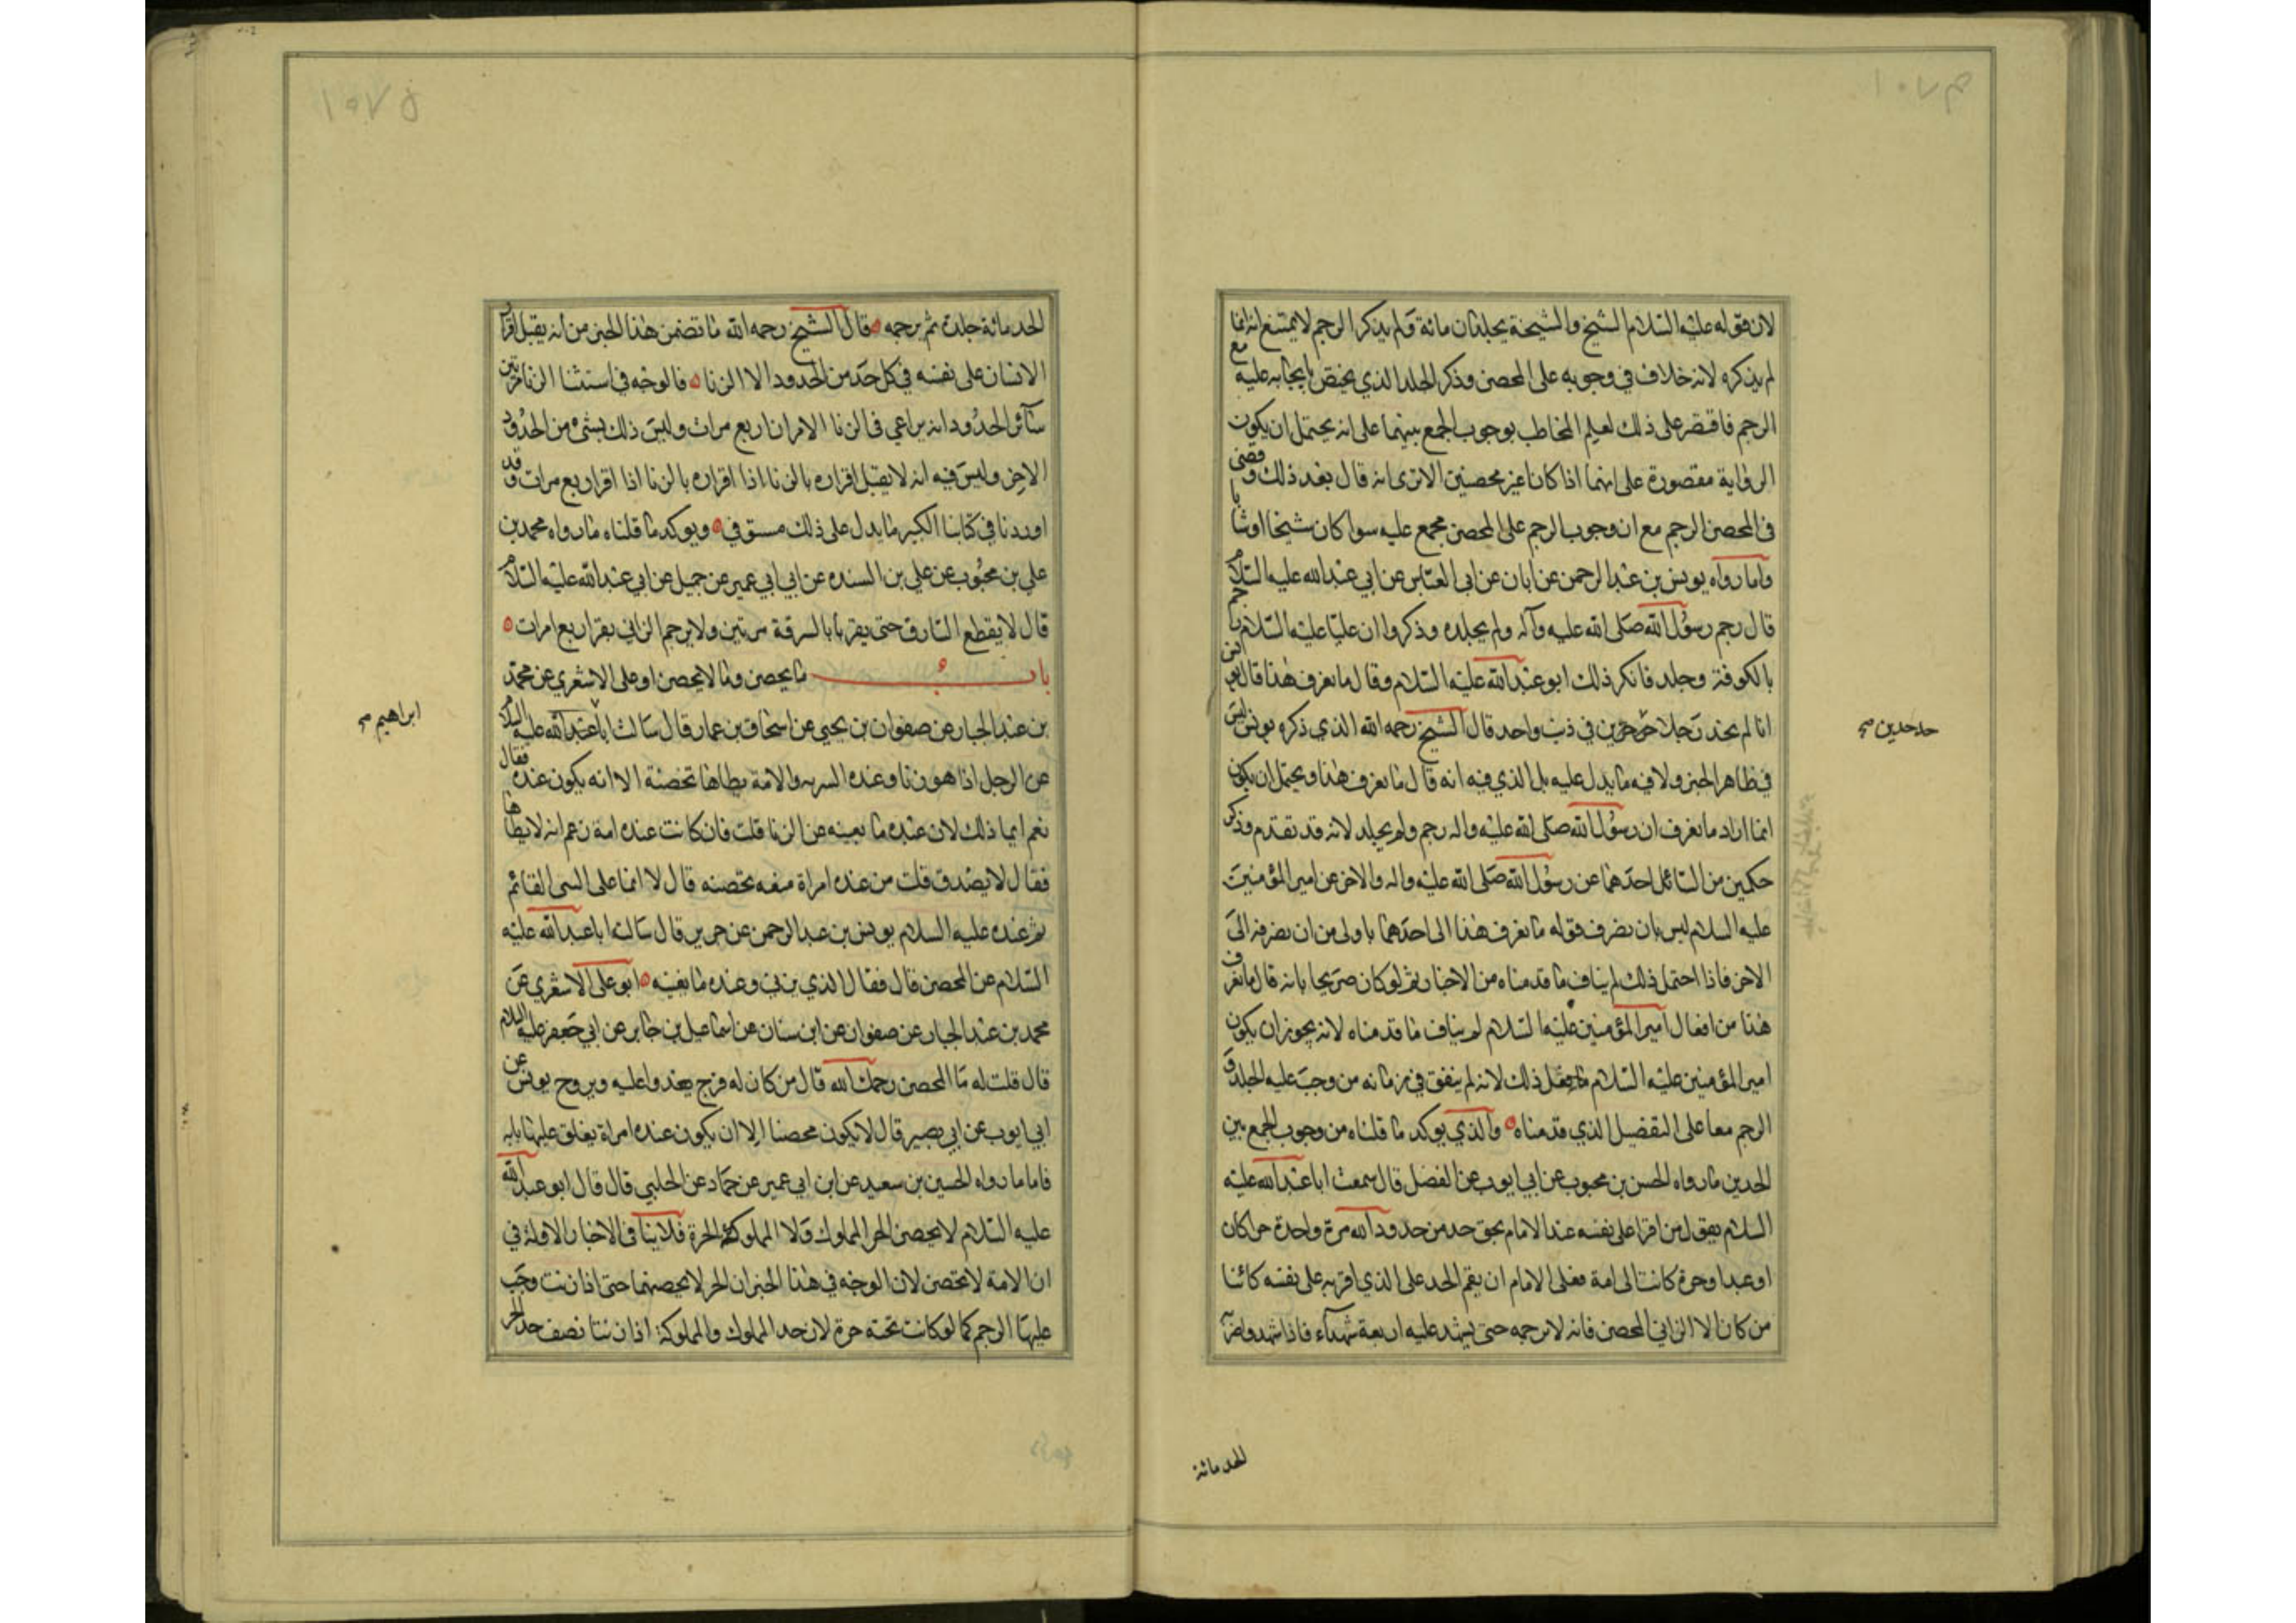 لان قوله عليه السلام الشيخ والشيخة يجلدان مائة ولم يذكر الرجم لا يمتنع انه انما
لم يذكره لانه لا خلاف في وجوبه على المحصن وذكر الجلد الذي يختص بايجابه عليه مع
الرجم فاقتصر على ذلك لعلم المخاطب بوجوب الجمع بينهما على انه يحتمل ان يكون
الرواية مقصورة على انهما اذا كانا غير محصنين الا ترى انه قال بعد ذلك وقضى
في المحصن الرجم مع ان وجوب الرجم على المحصن مجمع عليه سوا كان شيخا او شابا
واما رواه يونس بن عبد الرحمن عن ابان عن ابي العباس عن ابي عبد الله عليه السلام
قال رجم رسول الله صلى الله عليه وآله ولم يجلده وذكروا ان عليا عليه السلام رجم
بالكوفة وجلد فانكر ذلك ابو عبد الله عليه السلام وقال ما نعرف هذا قال يونس اي
انا لم نجد رجلا في ذنب واحد قال الشيخ رحمه الله الذي ذكره يونس ليس
في ظاهر الخبر ولا فيه ما يدل عليه بل الذي فيه انه قال ما نعرف هذا ويحتمل ان يكون
انما اراد ما نعرف ان رسول الله صلى الله عليه واله رجم ولم يجلد لانه قد تقدم وذكر
حكمين من السائل احدهما عن رسول الله صلى الله عليه واله والاخر عن امير المؤمنين
عليه السلام ليس بان نصرف قوله ما نعرف هذا الى احدهما باولى من ان نصرفه الى
الاخر فاذا احتمل ذلك لم يناف ما قدمناه من الاخبار ثم لو كان صريحا بانه قال ما نعرف
هذا من افعال امير المؤمنين عليه السلام لم يناف ما قدمناه لانه يجوز ان يكون
امير المؤمنين عليه السلام ما فعل ذلك لانه لم يتفق في زمانه من وجب عليه الجلد و
الرجم معا على التفصيل الذي قدمناه والذي يوكد ما قلناه من وجوب الجمع بين
الحدين ما رواه الحسن بن محبوب عن ابي ايوب عن الفضل قال سمعت ابا عبد الله عليه
السلام يقول من اقر على نفسه عند الامام بحق حد من حدود الله مرة واحدة حرا كان
او عبدا او حرة كانت او امة فعلى الامام ان يقيم الحد على الذي اقر به على نفسه كائنا
من كان الا الزاني المحصن فانه لا يرجمه حتى يشهد عليه اربعة شهداء فاذا شهدوا ضربه
حد حدين صح
الحد مائة
الحد مائة جلدة ثم يرجمه قال الشيخ رحمه الله ما تضمن هذا الخبر من انه يقبل اقرار
الانسان على نفسه في كل حد من الحدود الا الزنا فالوجه في استثنا الزنا من بين
سائر الحدود انه يراعي في الزنا الاقرار اربع مرات وليس ذلك بشيء من الحدود
الاخر وليس فيه انه لا يقبل اقراره بالزنا اذا اقراره بالزنا اذا اقر اربع مرات وقد
اوردنا في كتابنا الكبير ما يدل على ذلك مستوفي ويوكد ما قلناه ما رواه محمد بن
علي بن محبوب عن علي بن السنده عن ابي ابي عمير عن جميل عن ابي عبد الله عليه السلام
قال لا يقطع السارق حتى يقر بابالسرقة مرتين ولا يرجم الزاني يقر اربع امرات
باب ما يحصن وما لا يحصن اوعلى الاشعري عن محمد
بن عبد الجبار عن صفوان بن يحيى عن اسحاق بن عمار قال سالت ابا عبد الله عليه السلام
عن الرجل اذا هو زنا وعنده السريه والامة يطاها تحصنه الامة يكون عنده فقال
نعم انما ذلك لان عنده ما يعينه عن الزنا قلت فان كانت عنده امة زعم انه لا يطاها
فقال لا يصدق قلت من عنده امراة متعه تحصنه قال لا انما على الشي القائم
ثم عنده عليه السلام يونس بن عبد الرحمن عن حريز قال سالت ابا عبد الله عليه
السلام عن المحصن قال فقال الذي يزني وعنده ما يغنيه ابو على الاشعري عن
محمد بن عبد الجبار عن صفوان عن ابن سنان عن اسماعيل بن جابر عن ابي جعفر عليه السلام
قال قلت له ما المحصن رحمك الله قال من كان له فرج يغدوا عليه ويروح يونس عن
ابي ايوب عن ابي بصير قال لا يكون محصنا الا ان يكون عنده امراة يغلق عليها بابه
فاما ما رواه الحسين بن سعيد عن ابن ابي عمير عن حماد عن الحلبي قال قال ابو عبد الله
عليه السلام لا يحصن الحر المملوكة ولا المملوك الحرة فلا ينافى الاخبار الاولة في
ان الامة لا تحصن لان الوجه في هذا الخبر ان الحر لا يحصنها حتى اذا زنت وجب
عليها الرجم كما لو كانت تحته حرة لان حد المملوك والمملوكة اذا زنتا نصف حد الحر
ابراهيم صح